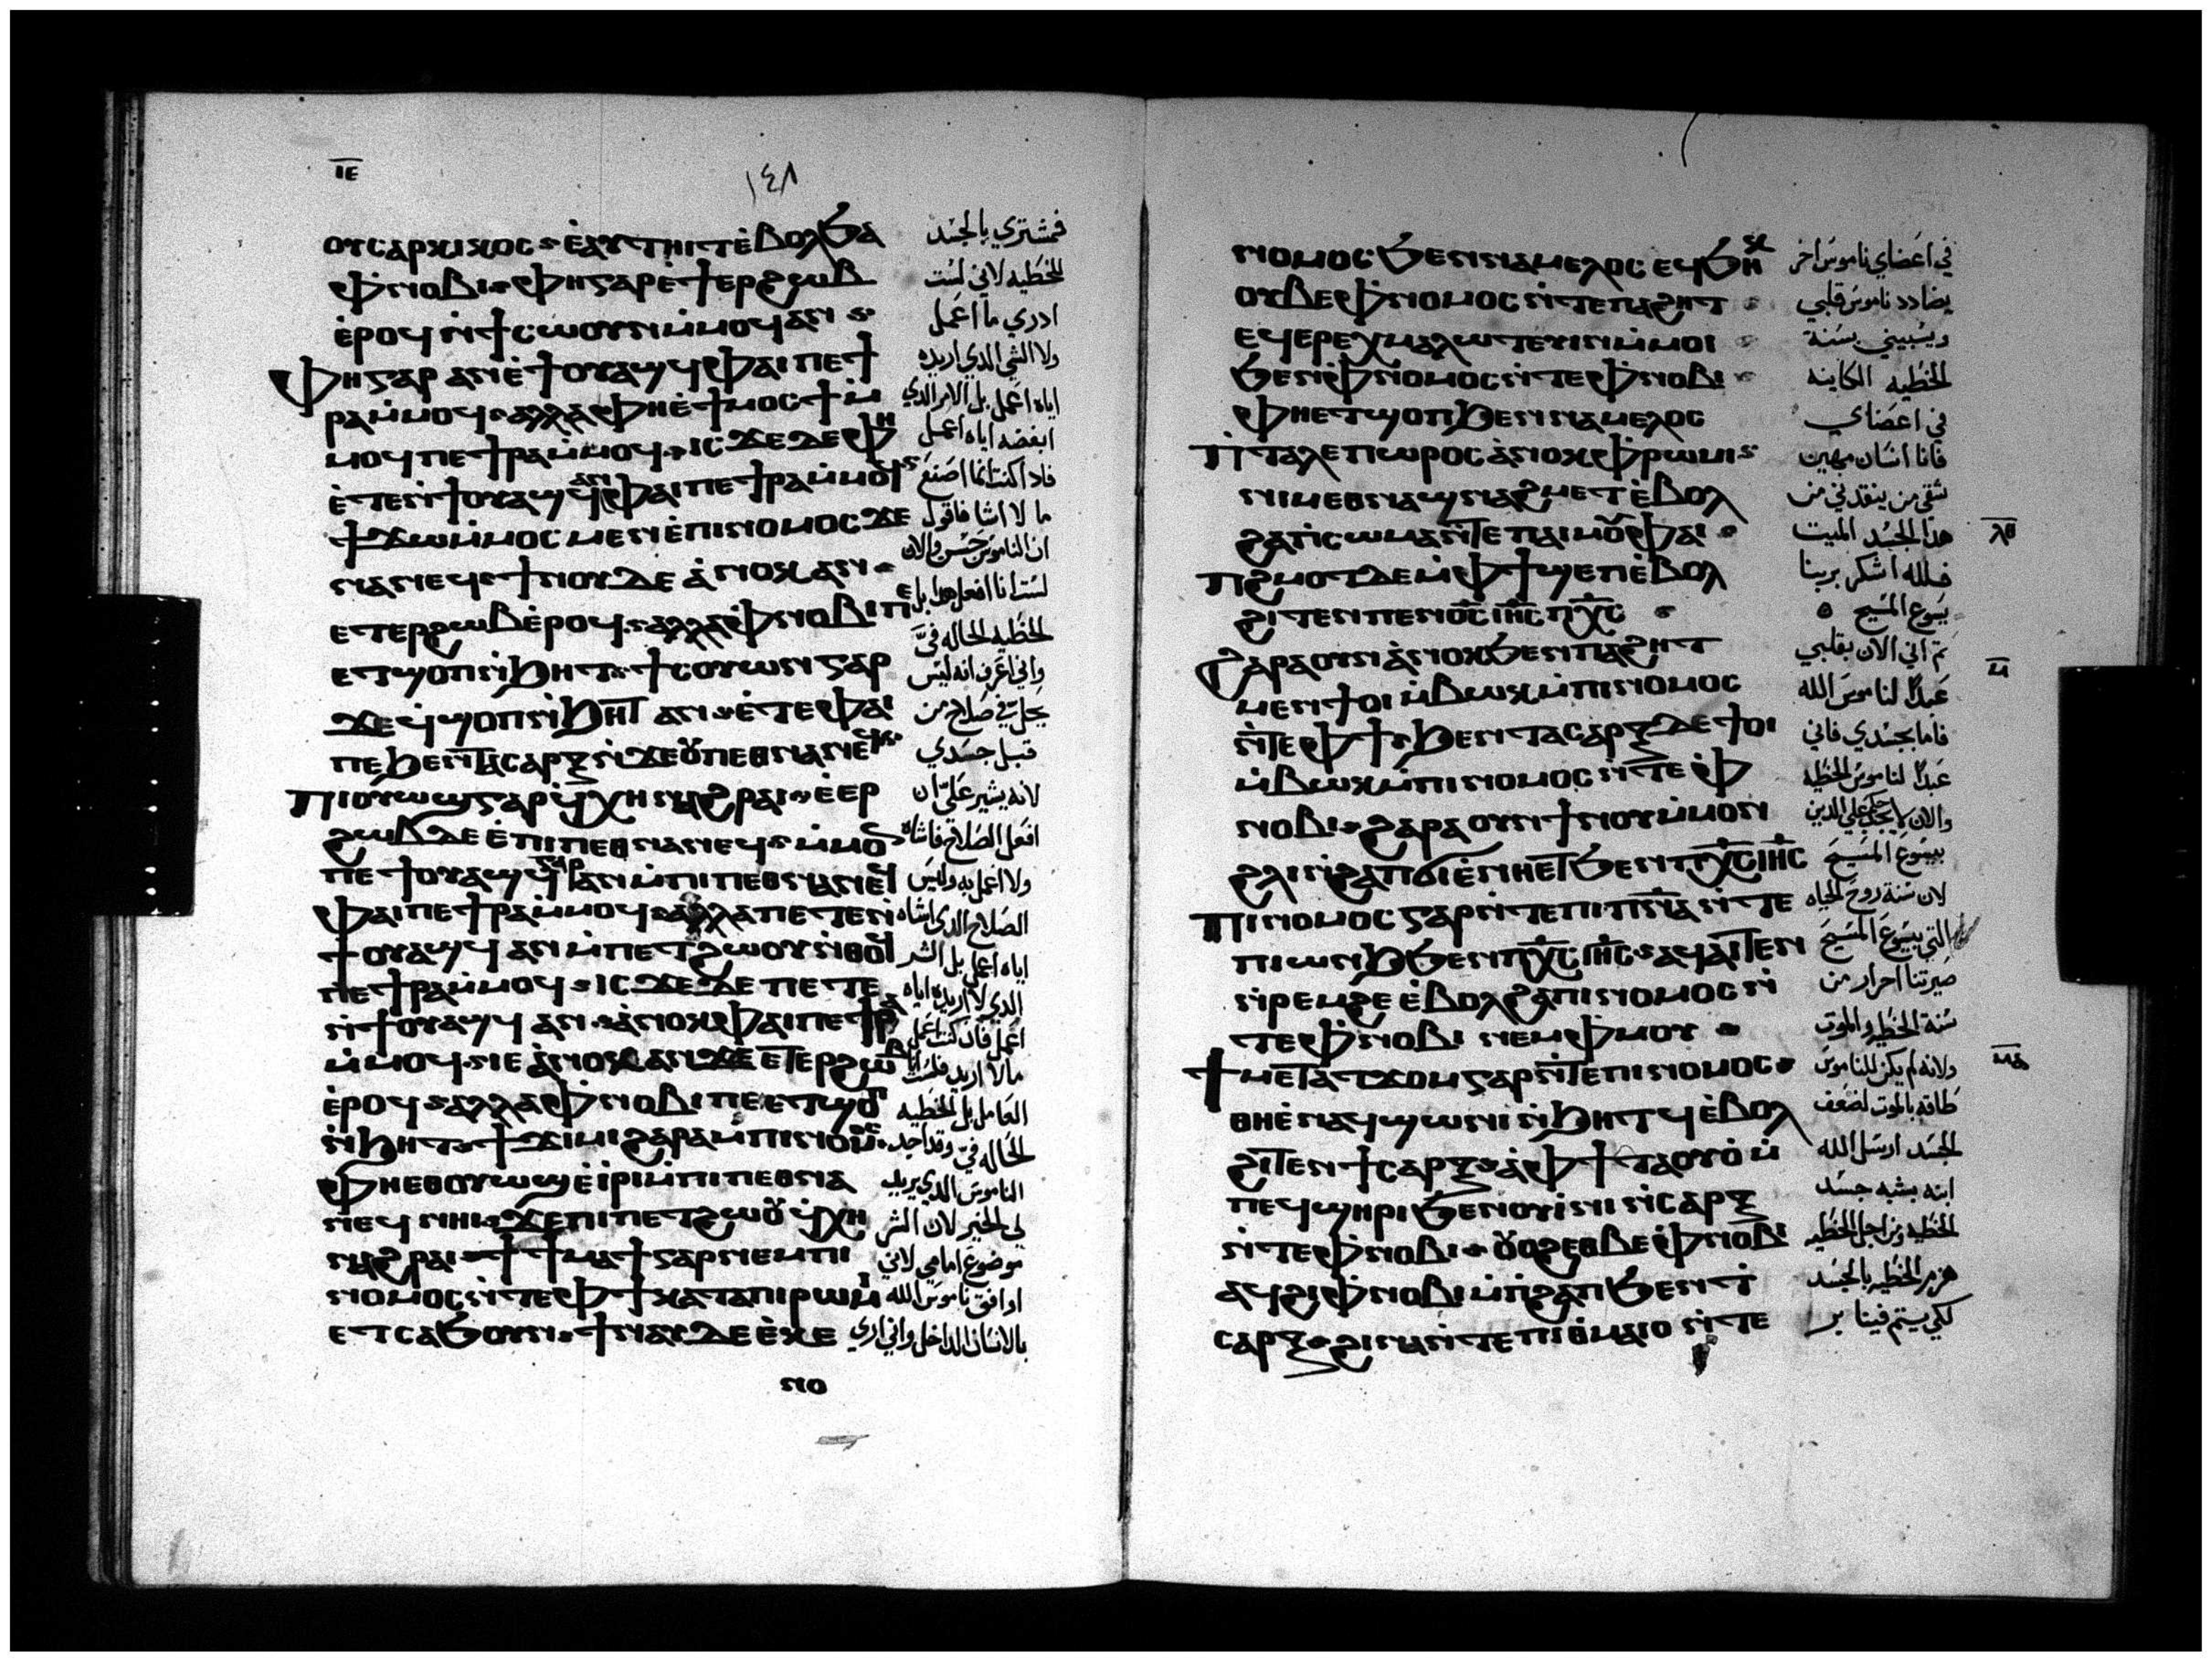 ⲓⲉ
١٤٨
ⲟⲩⲥⲁⲣⲕⲓⲕⲟⲥ ⲉ̀ⲁⲩⲧⲏⲓⲧ ⲉ̀ⲃⲟⲗ ϧⲁ
ⲫ̀ⲛⲟⲃⲓ ⲫⲏ ⲅⲁⲣ ⲉ̀ϯⲉⲣϩⲱⲃ
ⲉ̀ⲣⲟϥ ⲛ̀ϯⲥⲱⲟⲩⲛ ⲙ̀ⲙⲟϥ ⲁⲛ
ⲫⲏ ⲅⲁⲣ ⲁⲛ ⲉ̀ϯⲟⲩⲁϣϥ ⲫⲁⲓ ⲡⲉϯ
ⲣⲁ ⲙ̀ⲙⲟϥ ⲁⲗⲗⲁ ⲫⲏ ⲉ̀ϯⲙⲟⲥϯ ⲙ̀
ⲙⲟϥ ⲡⲉϯⲣⲁ ⲙ̀ⲙⲟϥ ⲓⲥϫⲉ ⲇⲉ ⲫⲏ
ⲉ̀ⲧⲉⲛ̀ϯⲟⲩⲁϣϥ ⲁⲛ ⲫⲁⲓ ⲡⲉϯⲣⲁ ⲙ̀ⲙⲟϥ
ϯϫⲱ ⲙ̀ⲙⲟⲥ ⲙⲉⲛ ⲉ̀ⲡⲓⲛⲟⲙⲟⲥ ϫⲉ
ⲛⲁⲛⲉϥ ϯⲛⲟⲩ ⲇⲉ ⲁ̀ⲛⲟⲕ ⲁⲛ
ⲉⲧⲉⲣϩⲱⲃ ⲉ̀ⲣⲟϥ ⲁⲗⲗⲁ ⲫ̀ⲛⲟⲃⲓ ⲡⲉ
ⲉⲧϣⲟⲡ ⲛ̀ϧⲏⲧ ϯⲥⲟⲩⲱⲛ ⲅⲁⲣ
ϫⲉ ϥ̀ϣⲟⲡ ⲛ̀ϧⲏⲧ ⲁⲛ ⲉ̀ⲧⲉ ⲫⲁⲓ
ⲡⲉ ϧⲉⲛ ⲧⲁⲥⲁⲣⲝ ⲛ̀ϫⲉ ⲟⲩⲡⲉⲑⲛⲁⲛⲉϥ
ⲡⲓⲟⲩⲱϣ ⲅⲁⲣ ϥ̀ⲭⲏ ⲛⲁϩⲣⲁⲓ ⲉ̀ⲉⲣ
ϩⲱⲃ ⲇⲉ ⲉ̀ⲡⲓⲡⲉⲑⲛⲁⲛⲉϥ ⲙ̀ⲙⲟⲛ
ⲡⲉϯⲟⲩⲁϣϥ ⲅⲁⲣ ⲁⲛ ⲙ̀ⲡⲓⲡⲉⲑⲛⲁⲛⲉϥ
ⲫⲁⲓ ⲡⲉϯⲣⲁ ⲙ̀ⲙⲟϥ ⲁⲗⲗⲁ ⲡⲉⲧⲉⲛ̀
ϯⲟⲩⲁϣϥ ⲁⲛ ⲙ̀ⲡⲉⲧϩⲱⲟⲩ ⲛ̀ⲑⲟϥ
ⲡⲉϯⲣⲁ ⲙ̀ⲙⲟϥ ⲓⲥϫⲉ ⲇⲉ ⲡⲉⲧⲉ
ⲛ̀ϯⲟⲩⲁϣϥ ⲁⲛ ⲁ̀ⲛⲟⲕ ⲫⲁⲓ ⲡⲉϯⲣⲁ
ⲙ̀ⲙⲟϥ ⲓⲉ ⲁ̀ⲛⲟⲕ ⲁⲛ ϫⲉ ⲉⲧⲉⲣϩⲱⲃ
ⲉ̀ⲣⲟϥ ⲁⲗⲗⲁ ⲫ̀ⲛⲟⲃⲓ ⲡⲉ ⲉⲧϣⲟⲡ
ⲛ̀ϧⲏⲧ ϯϫⲓⲙⲓ ϩⲁⲣⲁ ⲙ̀ⲡⲓⲛⲟⲙⲟⲥ
ⲫⲏⲉⲑⲟⲩⲱϣ ⲉ̀ⲓⲣⲓ ⲙ̀ⲡⲓⲡⲉⲑⲛⲁ
ⲛⲉϥ ⲛⲏⲓ ϫⲉ ⲡⲓⲡⲉⲧϩⲱⲟⲩ ϥ̀ⲭⲏ
ⲛⲁϩⲣⲁⲓ ϯϯⲙⲁϯ ⲅⲁⲣ ⲛⲉⲙ ⲡⲓ
ⲛⲟⲙⲟⲥ ⲛ̀ⲧⲉ ⲫϯ ⲕⲁⲧⲁ ⲡⲓⲣⲱⲙⲓ
ⲉⲧⲥⲁϧⲟⲩⲛ ϯⲛⲁⲩ ⲇⲉ ⲉ̀ⲕⲉ
ⲛⲟ
فمشتري بالجسد
للخطيه لاني لست
ادري ما اعمل
ولا الشي الدي اريده
اياه اعمل بل الامر الدي
ابغضه اياه اعمل
فادا كنت انما اصنع
ما لا اشا فاقول
ان الناموس حسن والان
لست انا افعل هدا بل
الخطيه الحاله فيَّ
واني اعرف انه ليس
يحل فيَّ صلاح من
قبل جسدي
لانه يشير عليّ ان
افعل الصلاح فاشاه
ولا اعمل به وليس
الصلاح الدي اشاه
اياه اعمل بل الشر
الدي لا اريده اياه
اعمل فان كنت اعمل
ما لا اريد فلست انا
العامل بل الخطيه
الحاله فيّ وقد اجد
الناموس الدي يريد
لي الخير لان الشر
موضوع امامي لاني
اوافق ناموس الله
بالانسان الداخل واني اري
ⲛⲟⲙⲟⲥ ϧⲉⲛ ⲛⲁⲙⲉⲗⲟⲥ ⲉϥϯ
ⲟⲩⲃⲉ ⲫ̀ⲛⲟⲙⲟⲥ ⲛ̀ⲧⲉ ⲡⲁϩⲏⲧ
ⲉϥⲉⲣⲉⲭⲙⲁⲗⲱⲧⲉⲩⲓⲛ ⲙ̀ⲙⲟⲓ
ϧⲉⲛ ⲫ̀ⲛⲟⲙⲟⲥ ⲛ̀ⲧⲉ ⲫ̀ⲛⲟⲃⲓ
ⲫⲏⲉⲧϣⲟⲡ ϧⲉⲛ ⲛⲁⲙⲉⲗⲟⲥ
ⲡⲓⲧⲁⲗⲉⲡⲱⲣⲟⲥ ⲁ̀ⲛⲟⲕ ⲫ̀ⲣⲱⲙⲓ
ⲛⲓⲙ ⲉⲑⲛⲁϣⲛⲁϩⲙⲉⲧ ⲉ̀ⲃⲟⲗ
ϩⲁ ⲡⲓⲥⲱⲙⲁ ⲛ̀ⲧⲉ ⲡⲁⲓⲙⲟⲩ ⲫⲁⲓ
ⲡϩⲙⲟⲧ ⲇⲉ ⲙ̀ⲫϯ ϣⲏⲡ ⲉ̀ⲃⲟⲗ
ϩⲓⲧⲉⲛ ⲡⲉⲛⲟ̅ⲥ̅ ⲓⲏ̅ⲥ̅ ⲡⲭ̅ⲥ̅
ϩⲁⲣⲁ ⲟⲩⲛ ⲁ̀ⲛⲟⲕ ϧⲉⲛ ⲡⲁϩⲏⲧ
ⲙⲉⲛ ϯⲟⲓ ⲙ̀ⲃⲱⲕ ⲙ̀ⲡⲓⲛⲟⲙⲟⲥ
ⲛ̀ⲧⲉ ⲫϯ ϧⲉⲛ ⲧⲁⲥⲁⲣⲝ ⲇⲉ ϯⲟⲓ
ⲙ̀ⲃⲱⲕ ⲙ̀ⲡⲓⲛⲟⲙⲟⲥ ⲛ̀ⲧⲉ ⲫ̀
ⲛⲟⲃⲓ ϩⲁⲣⲁ ⲟⲩⲛ ϯⲛⲟⲩ ⲙ̀ⲙⲟⲛ
ϩⲗⲓ ⲛ̀ϩⲁⲡ ϭⲓ ⲉ̀ⲛⲏⲉⲧ ϧⲉⲛ ⲡⲭ̅ⲥ̅ ⲓⲏ̅ⲥ̅
ⲡⲓⲛⲟⲙⲟⲥ ⲅⲁⲣ ⲛ̀ⲧⲉ ⲡⲓⲡⲛ̅ⲁ̅ ⲛ̀ⲧⲉ
ⲡⲓⲱⲛϧ ϧⲉⲛ ⲡⲭ̅ⲥ̅ ⲓⲏ̅ⲥ̅ ⲁϥⲁⲓⲧⲉⲛ
ⲛ̀ⲣⲉⲙϩⲉ ⲉ̀ⲃⲟⲗϩⲁ ⲡⲓⲛⲟⲙⲟⲥ ⲛ̀
ⲧⲉ ⲫ̀ⲛⲟⲃⲓ ⲛⲉⲙ ⲫ̀ⲙⲟⲩ
ϯⲙⲉⲧⲁⲧϫⲟⲙ ⲅⲁⲣ ⲛ̀ⲧⲉ ⲡⲓⲛⲟⲙⲟⲥ
ⲑⲏ ⲉ̀ⲛⲁϥϣⲱⲛⲓ ⲛ̀ϧⲏⲧϥ ⲉ̀ⲃⲟⲗ
ϩⲓⲧⲉⲛ ϯⲥⲁⲣⲝ ⲁ̀ ⲫϯ ⲧⲁⲟⲩⲟ̀ ⲙ̀
ⲡⲉϥϣⲏⲣⲓ ϧⲉⲛ ⲟⲩⲓ̀ⲛⲓ ⲛ̀ⲥⲁⲣⲝ
ⲛ̀ⲧⲉ ⲫ̀ⲛⲟⲃⲓ ⲟⲩⲟϩ ⲉⲑⲃⲉ ⲫ̀ⲛⲟⲃⲓ
ⲁϥϩⲓ ⲫ̀ⲛⲟⲃⲓ ⲙ̀ⲡϩⲁⲡ ϧⲉⲛ ϯ
ⲥⲁⲣⲝ ϩⲓⲛⲁ ⲛ̀ⲧⲉ ⲡⲓⲑⲙⲁⲓⲟ ⲛ̀ⲧⲉ
في اعضاي ناموس اخر
يضادد ناموس قلبي
ويسبيني بسنة
الخطيه الكاينه
في اعضاي
فانا انسان مهين
شقي من ينقدني من
هدا الجسد الميت
فلله اشكر بربنا
يسوع المسيح
ثم اني الان بقلبي
عبدًا لناموس الله
فاما بجسدي فاني
عبدًا لناموس الخطيه
والان لا حكم علي الدين
بيسوع المسيح
لان سنة روح الحياه
التي بيسوع المسيح
صيرتنا احرار من
سنة الخطيه والموت
ولانه لم يكن للناموس
طاقه بالموت لضعف
الجسد ارسل الله
ابنه بشبه جسد
الخطيه ومن اجل الخطيه
هزم الخطيه بالجسد
لكي يستتم فينا بر